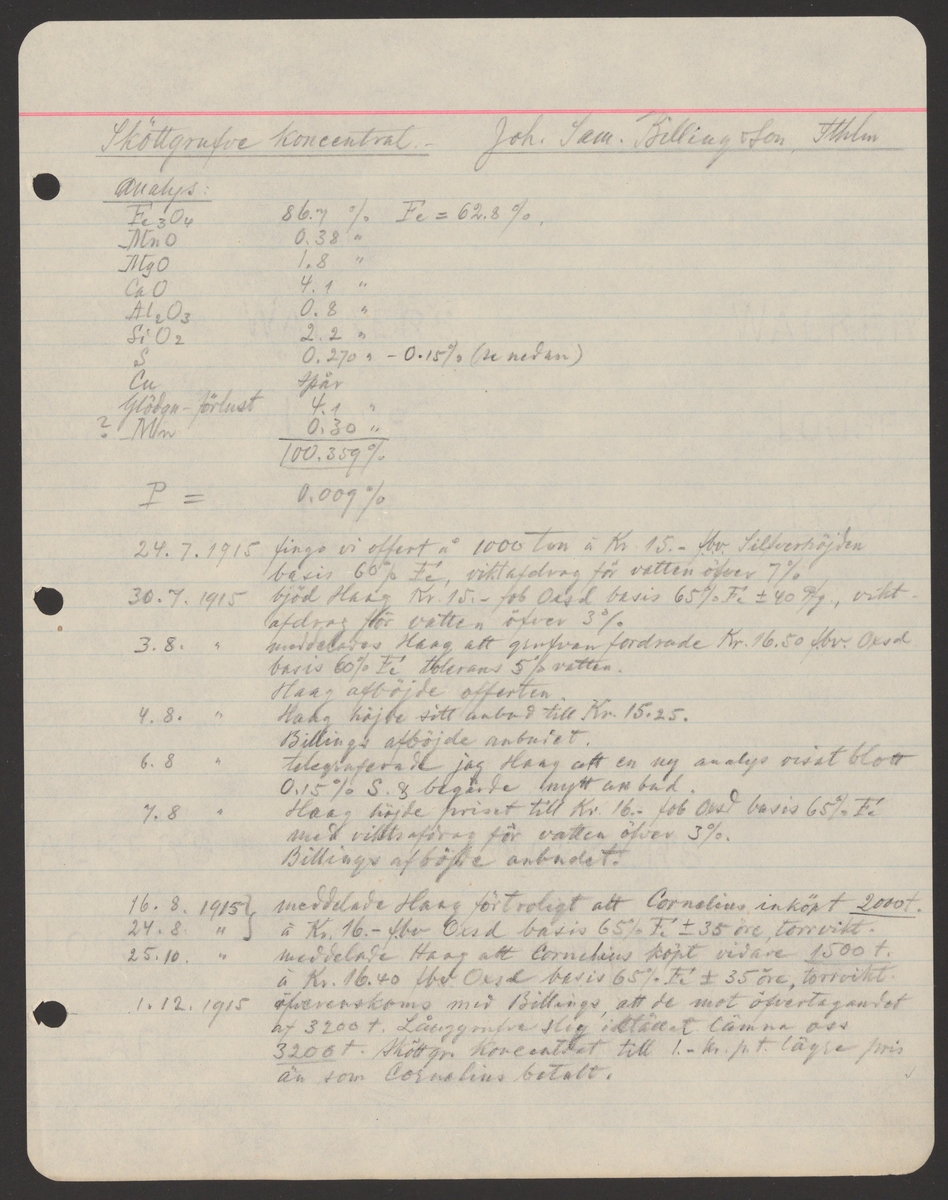 Sköttgrufve koncentrat.- Joh. Sam. Billing & Son, Sthlm
Analys:
Fe3O4 86.7 % Fe = 62.8 %.
MnO 0.38 "
MgO 1.8 "
CaO 4.1 "
Al2O3 0.8 "
SiO2 2.2 "
S 0.270 " - 0.15% (se nedan)
Cu spår
Glödgn-förlust 4.1 "
? Mn 0.30 "
100.359 %
P = 0.009 %
24.7.1915 fingo vi offert å 1000 ton à Kr. 15.- fbv. Silfverhöjden
basis 60% Fe, viktafdrag för vatten öfver 7%
30.7.1915 bjöd Haag Kr. 15.- fob Oxsd basis 65% Fe ± 40 , vikt-
afdrag för vatten öfver 3%
3.8. " meddelades Haag att grufvan fordrade Kr. 16.50 fbv. Oxsd
basis 60% Fe tolerans 5% vatten.
Haag afböjde offerten.
4.8. " Haag höjde sitt anbud till Kr. 15.25.
Billings afböjde anbudet.
6.8 " telegraferade jag Haag att en ny analys visat blott
0.15% S. & begärde nytt anbud.
7.8 " Haag höjde priset till Kr. 16.- fob Oxsd basis 65% Fe
med viktsafdrag för vatten öfver 3%.
Billings afböjde anbudet.
16.8. 1915 } meddelade Haag förtroligt att Cornelius inköpt 2000 t.
24.8. " } à Kr. 16.- fbv Oxsd basis 65% Fe ± 35 öre, torrvikt.
25.10. " meddelade Haag att Cornelius köpt vidare 1500 t.
à Kr. 16.40 fbv Oxsd basis 65% Fe ± 35 öre, torrvikt.
1.12.1915 öfverenskoms med Billings att de mot öfvertagandet
af 3200 t. Långgrufve slig i stället lämna oss
3200 t. Sköttgr. Koncentrat till 1.- kr. p. t. lägre pris
än som Cornelius betalt.